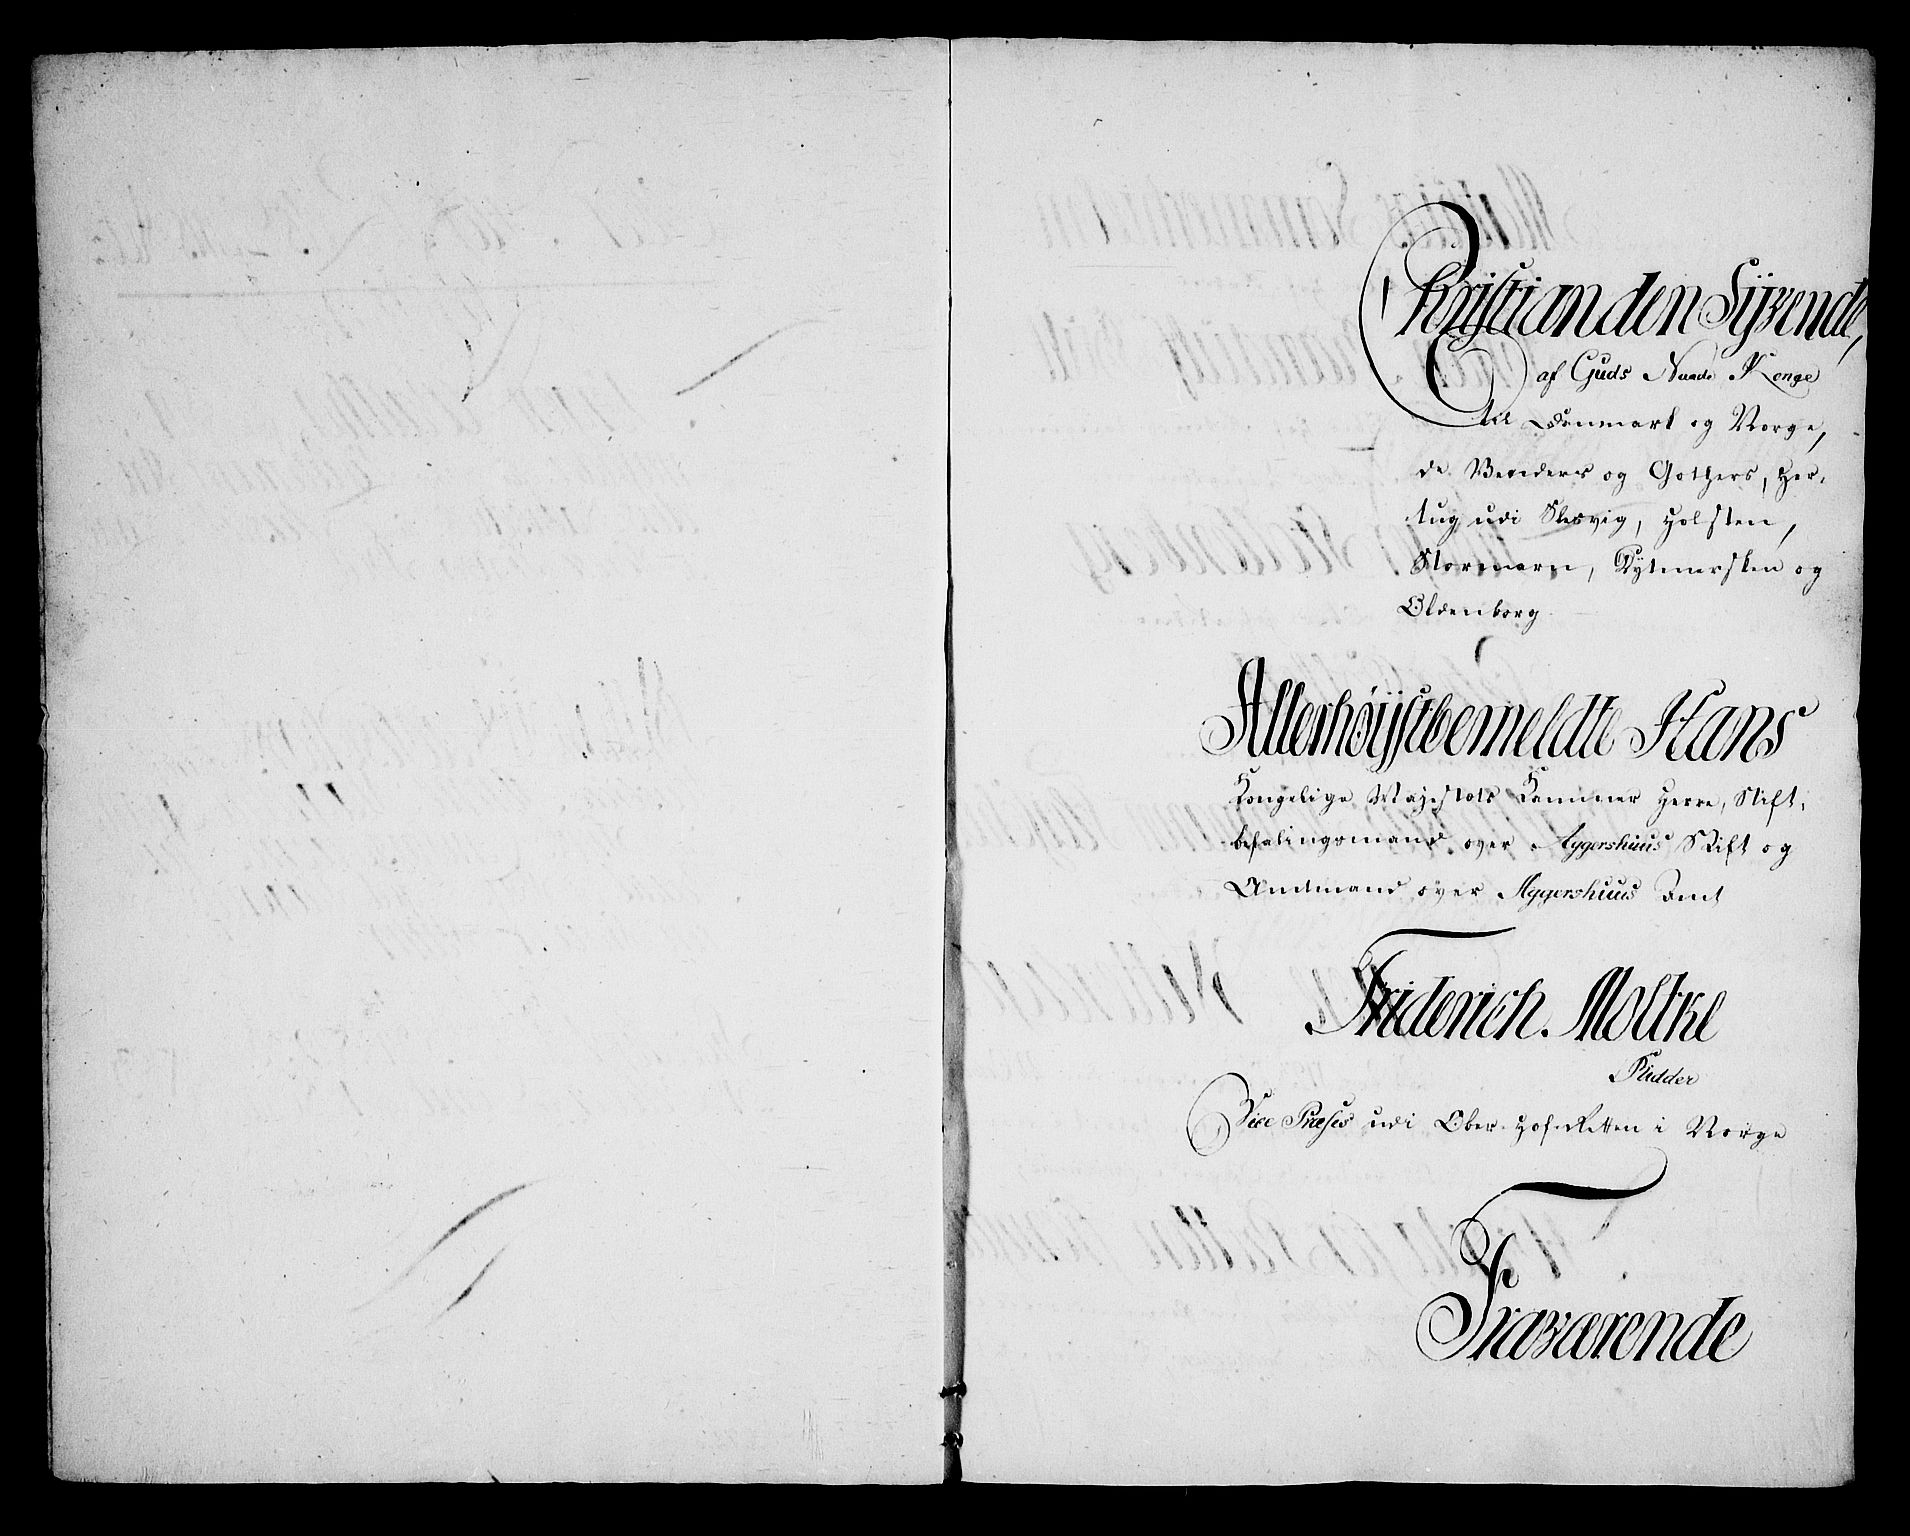 Christian den Syvende,
af Guds Naade Konge
til Danmark og Norge,
de Venders og Gothers, Her-
tug udi Slesvig, Holsten,
Stormarn, Dytmersken og
Oldenborg
Allerhøystbemeldte Hans
Kongelige Mayestets Kammer Herre, Stift-
befalingsmand over Aggershuus Stift og
Amtmand over Aggershuus Amt
Friderich Moltke
Ridder
Vice Præses udi Ober-Hof-Retten i Norge
Fraværende